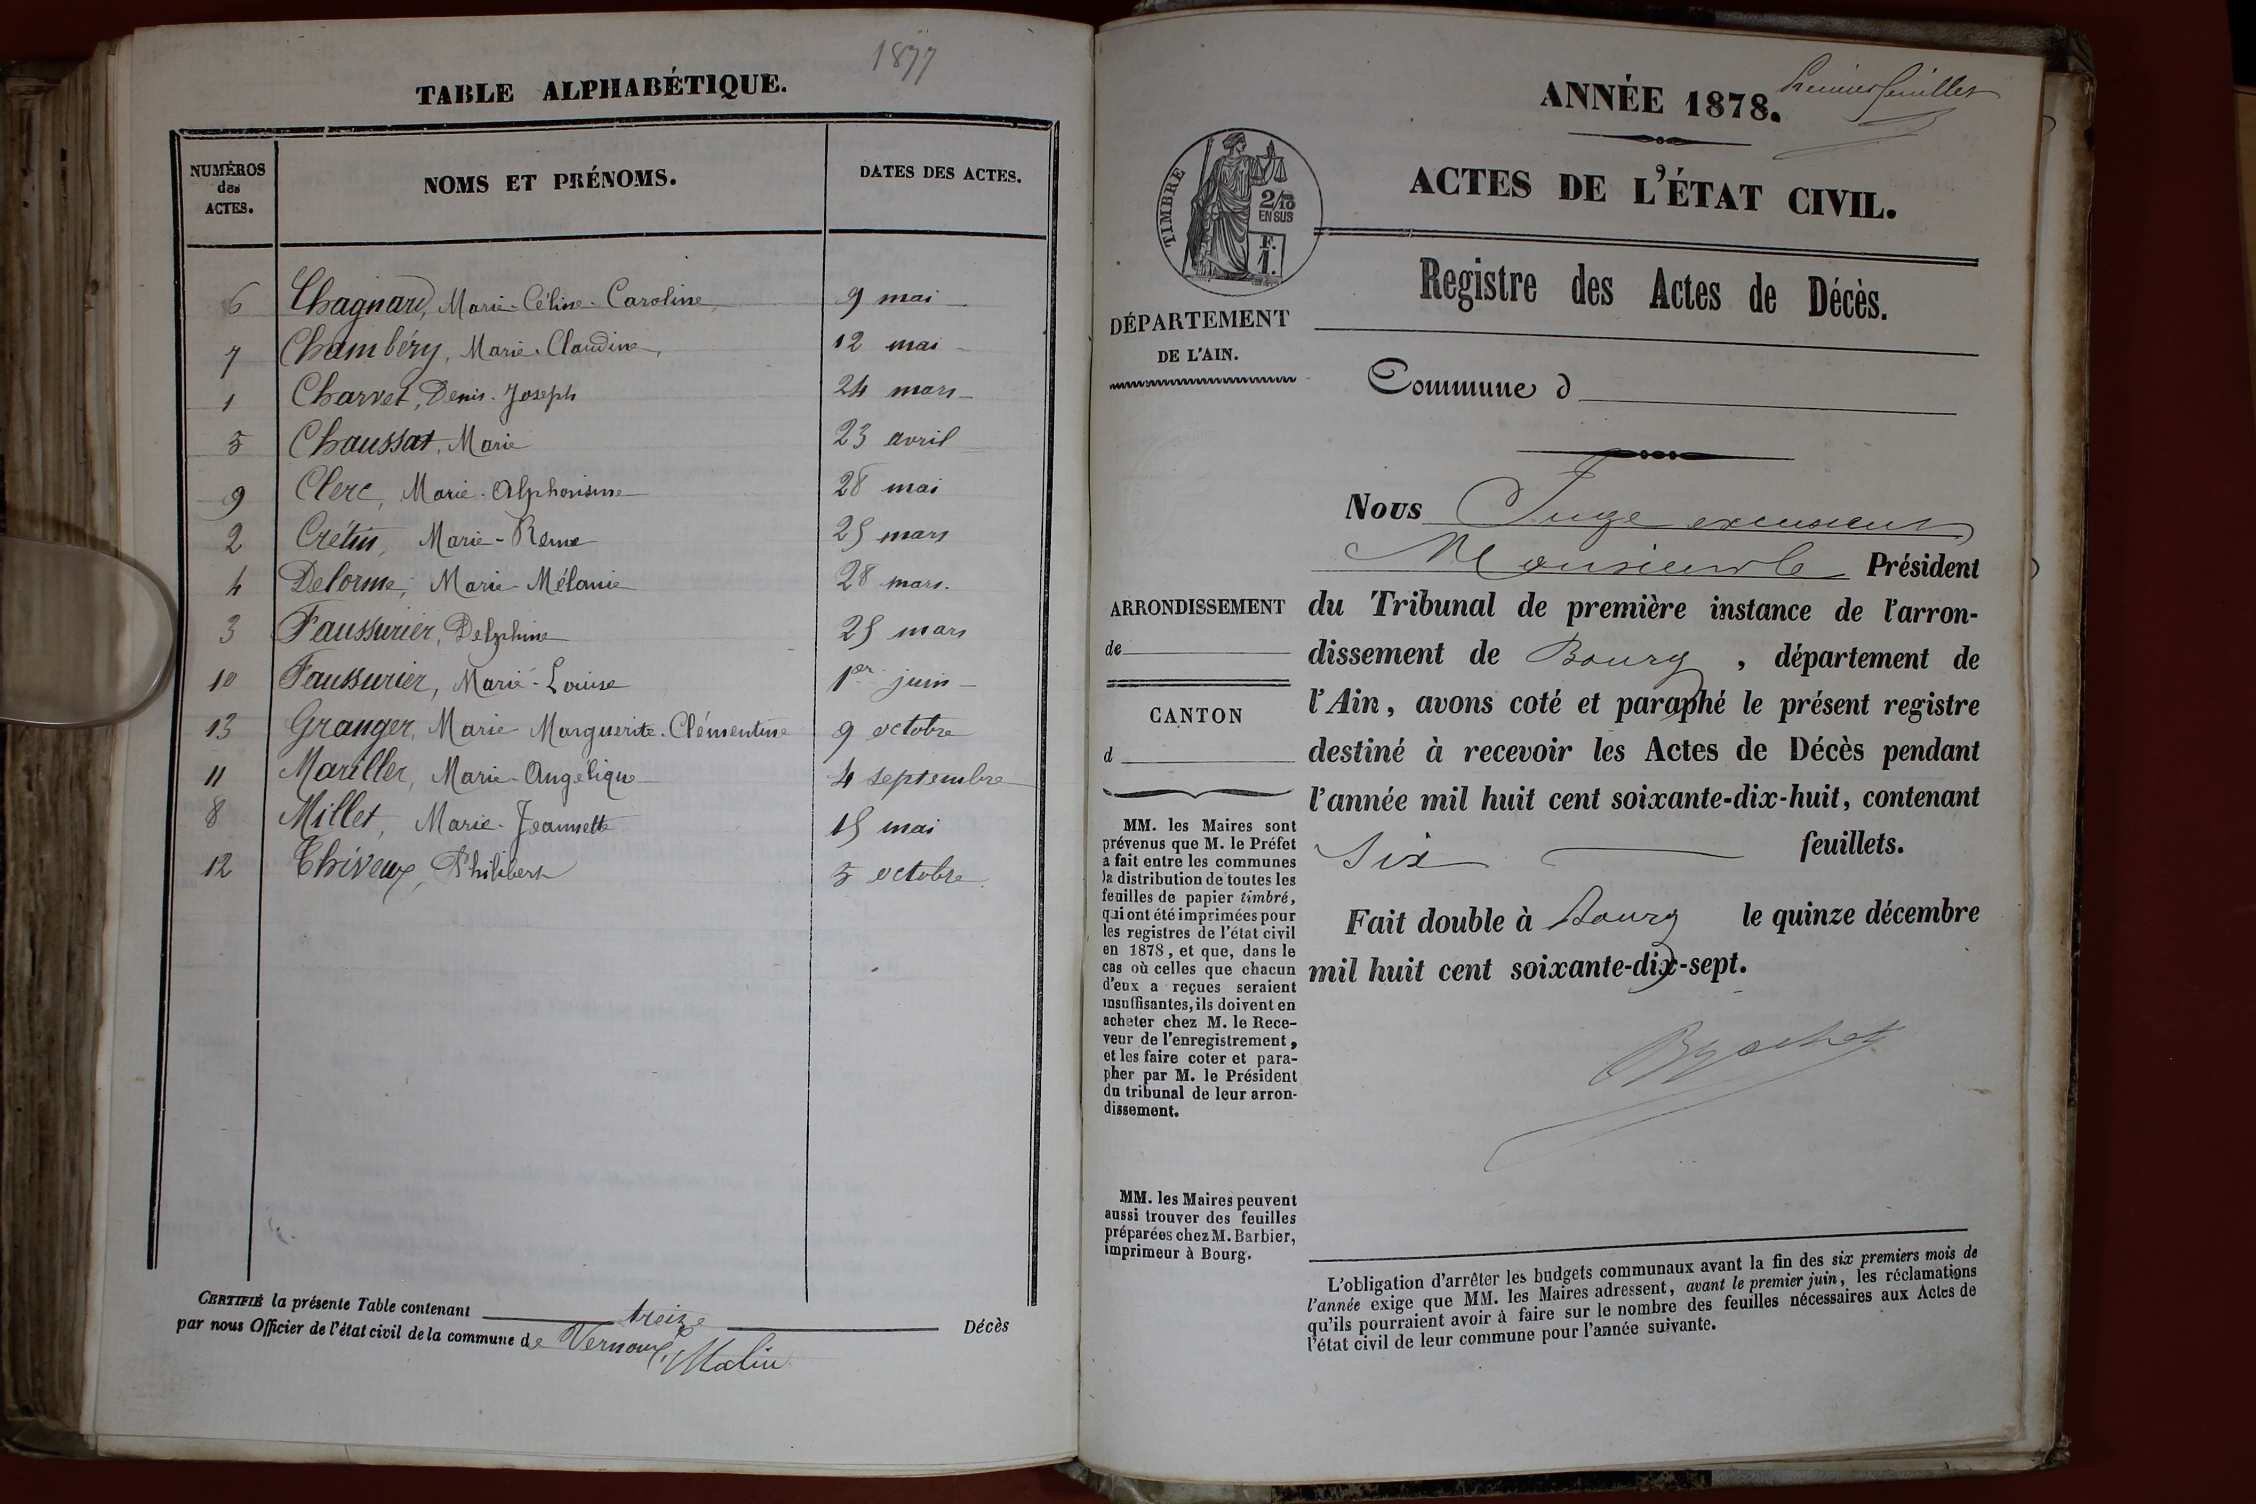 1877
TABLE ALPHABÉTIQUE.
NUMÉROS
des
ACTES.
NOMS ET PRÉNOMS.
DATES DES ACTES.
6 Chagnard, Marie-Céline-Caroline 9 mai
7 Chambéry, Marie-Claudine, 12 mai
1 Charvet, Denis-Joseph 24 mars
5 Chaussat, Marie 23 avril
9 Clerc, Marie-Alphonsine 28 mai
2 Crétin, Marie-Reine 25 mars
4 Delorme, Marie-Mélanie 28 mars.
3 Faussurier, Delphine 25 mars
10 Faussurier, Marie-Louise 1er juin
13 Granger, Marie Marguerite-Clémentine 9 octobre
11 Mariller, Marie-Angélique 4 septembre
8 Millet, Marie-Jeannette 15 mai
12 Thiveux, Philibert 5 octobre
CERTIFIÉ la présente Table contenant treize Décès
par nous Officier de l'état civil de la commune de Vernoux,
ANNÉE 1878.
Premier feuillet
ACTES DE L'ÉTAT CIVIL.
TIMBRE
2/10
EN SUS
F.
1.
Registre des Actes de Décès.
DÉPARTEMENT
DE L'AIN.
Commune d
Nous Juge excusant
Monsieur le Président
du Tribunal de première instance de l'arron-
dissement de Bourg, département de
l'Ain, avons coté et paraphé le présent registre
destiné à recevoir les Actes de Décès pendant
l'année mil huit cent soixante-dix-huit, contenant
Six feuillets.
Fait double à Bourg le quinze décembre
mil huit cent soixante-dix-sept.
ARRONDISSEMENT
de
CANTON
d
MM. les Maires sont
prévenus que M. le Préfet
a fait entre les communes
la distribution de toutes les
feuilles de papier timbré,
qui ont été imprimées pour
les registres de l'état civil
en 1878, et que, dans le
cas où celles que chacun
d'eux a reçues seraient
insuffisantes, ils doivent en
acheter chez M. le Rece-
veur de l'enregistrement,
et les faire coter et para-
pher par M. le Président
du tribunal de leur arron-
dissement.
MM. les Maires peuvent
aussi trouver des feuilles
préparées chez M. Barbier,
imprimeur à Bourg.
L'obligation d'arrêter les budgets communaux avant la fin des six premiers mois de
l'année exige que MM. les Maires adressent, avant le premier juin, les réclamations
qu'ils pourraient avoir à faire sur le nombre des feuilles nécessaires aux Actes de
l'état civil de leur commune pour l'année suivante.